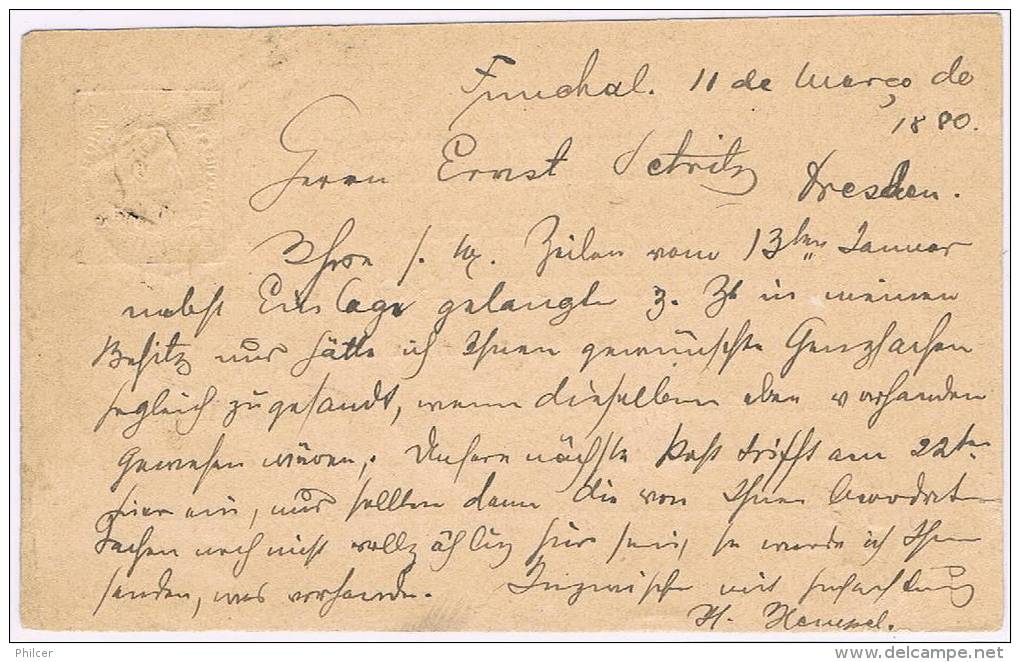 Funchal. 11 de Março de
1880.
Herrn Ernst
Dresden.
Ihre f. W. Zeilen vom 13ten Januar
nebst Einlage gelangte z. Zt in meinen
Besitz und hätte ich Ihnen gewünschte Ganzsachen
sogleich zugesandt, wenn dieselben eben vorhanden
gewesen wären. Unsere nächste Post trifft am 22ten
hier ein, und sollten dann die von Ihnen beordert
Sachen noch nicht vollzählig hier sein, so werde ich Ihnen
senden, was vorhanden. Inzwischen mit Hochachtung
H.
Philcer
www.delcampe.net